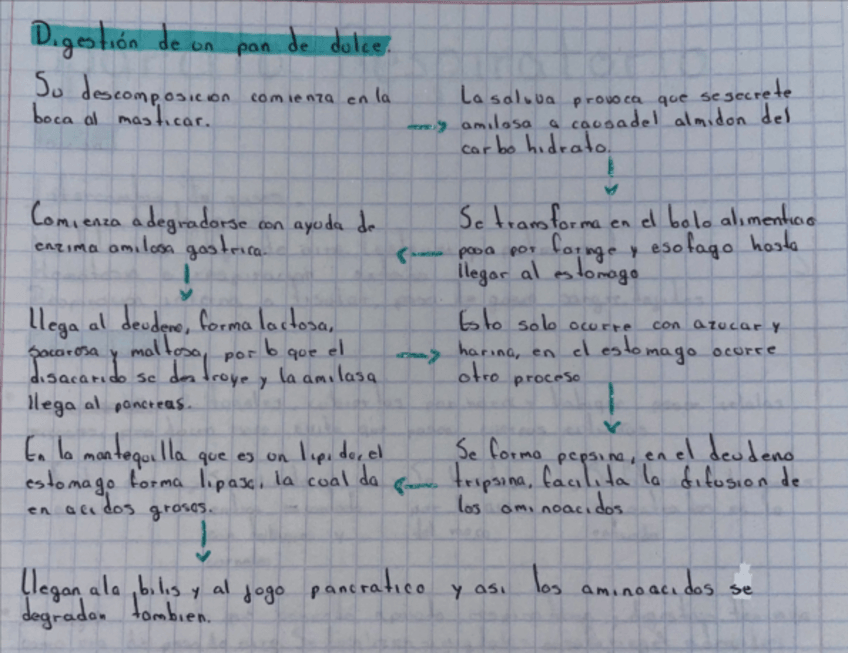 Digestión de un pan de dulce.
Su descomposicion comienza en la
boca al masticar.
La saliva provoca que se secrete
amilasa a causa del almidon del
carbo hidrato.
Se transforma en el bolo alimenticio
pasa por faringe y esofago hasta
llegar al estomago
Comienza a degradarse con ayuda de
enzima amilasa gastrica.
Llega al deudeno, forma lactosa,
sacarosa y maltosa, por lo que el
disacarido se destroye y la amilasa
llega al pancreas.
Esto solo ocurre con azucar y
harina, en el estomago ocurre
otro proceso
Se forma pepsina, en el deudeno
tripsina, facilita la difusion de
los aminoacidos
En la mantequilla que es un lipidor, el
estomago forma lipasa, la cual da
en acidos grasos.
Llegan a la bilis y al jogo pancratico y asi los aminoacidos se
degradan tambien.